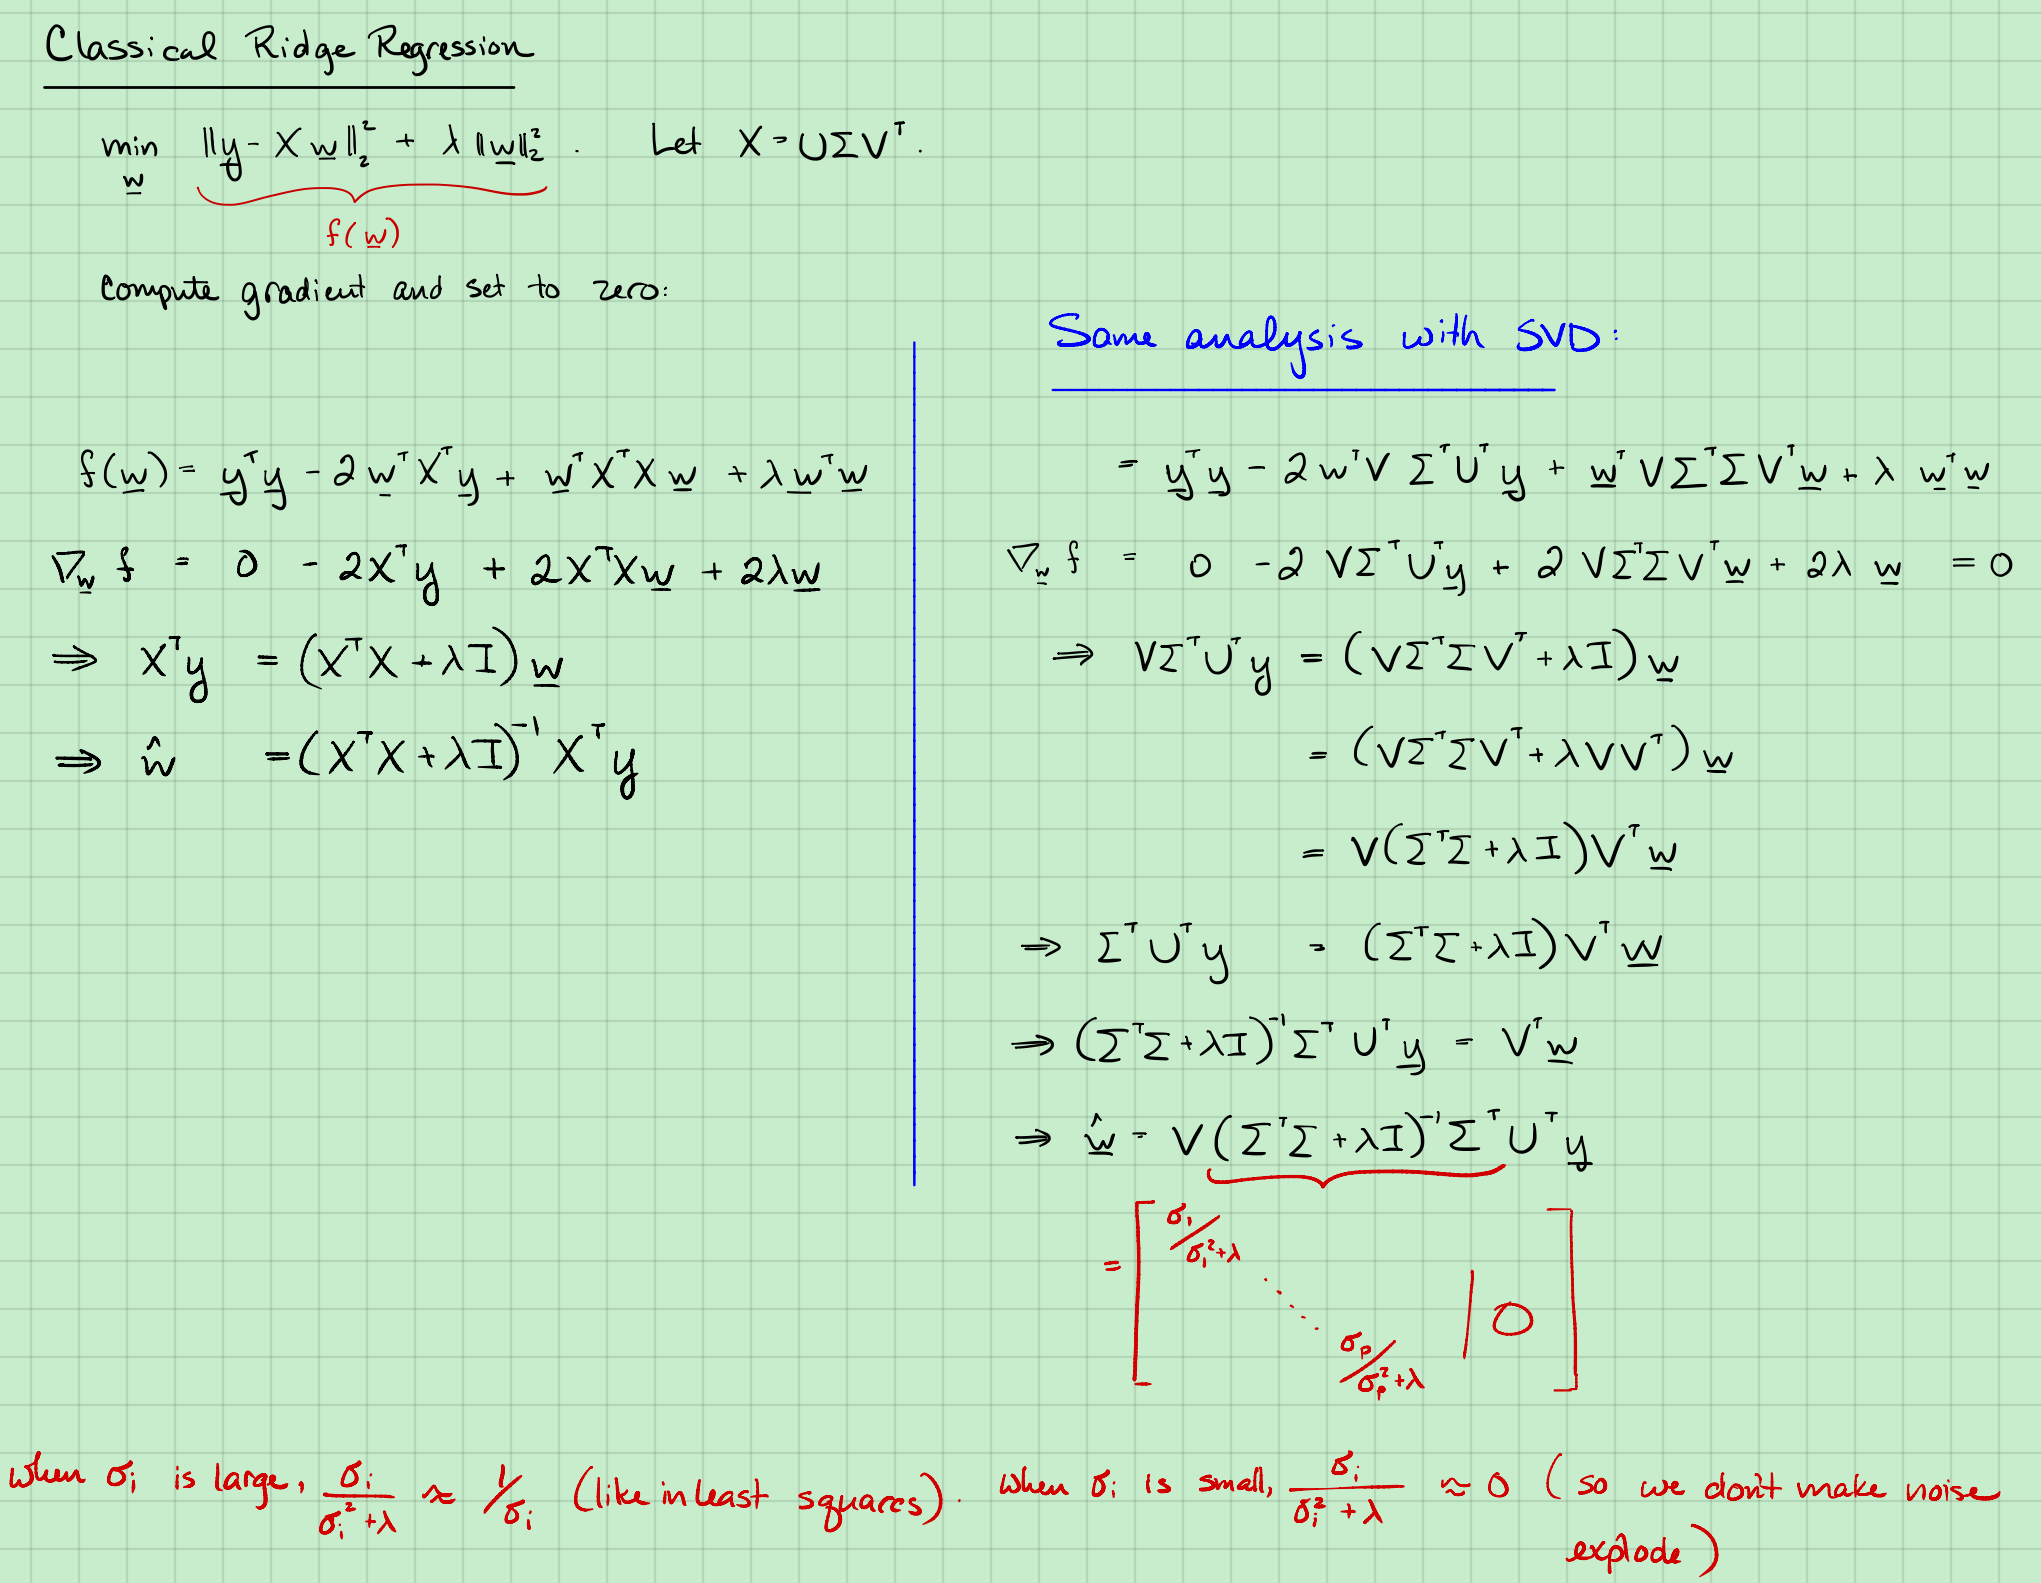 Classical Ridge Regression
min_w ‖y - Xw‖₂² + λ‖w‖₂². Let X = UΣVᵀ.
f(w)
Compute gradient and set to zero:
f(w) = yᵀy - 2wᵀXᵀy + wᵀXᵀXw + λwᵀw
∇_w f = 0 - 2Xᵀy + 2XᵀXw + 2λw
⇒ Xᵀy = (XᵀX + λI)w
⇒ ŵ = (XᵀX + λI)⁻¹Xᵀy
Same analysis with SVD:
= yᵀy - 2wᵀVΣᵀUᵀy + wᵀVΣᵀΣVᵀw + λwᵀw
∇_w f = 0 - 2VΣᵀUᵀy + 2VΣᵀΣVᵀw + 2λw = 0
⇒ VΣᵀUᵀy = (VΣᵀΣVᵀ + λI)w
= (VΣᵀΣVᵀ + λVVᵀ)w
= V(ΣᵀΣ + λI)Vᵀw
⇒ ΣᵀUᵀy = (ΣᵀΣ + λI)Vᵀw
⇒ (ΣᵀΣ + λI)⁻¹ΣᵀUᵀy = Vᵀw
⇒ ŵ = V(ΣᵀΣ + λI)⁻¹ΣᵀUᵀy
= [σ₁/σ₁²+λ ⋱ σₚ/σₚ²+λ | 0]
When σᵢ is large, σᵢ/σᵢ²+λ ≈ 1/σᵢ (like in least squares). When σᵢ is small, σᵢ/σᵢ²+λ ≈ 0 (so we don't make noise
explode)